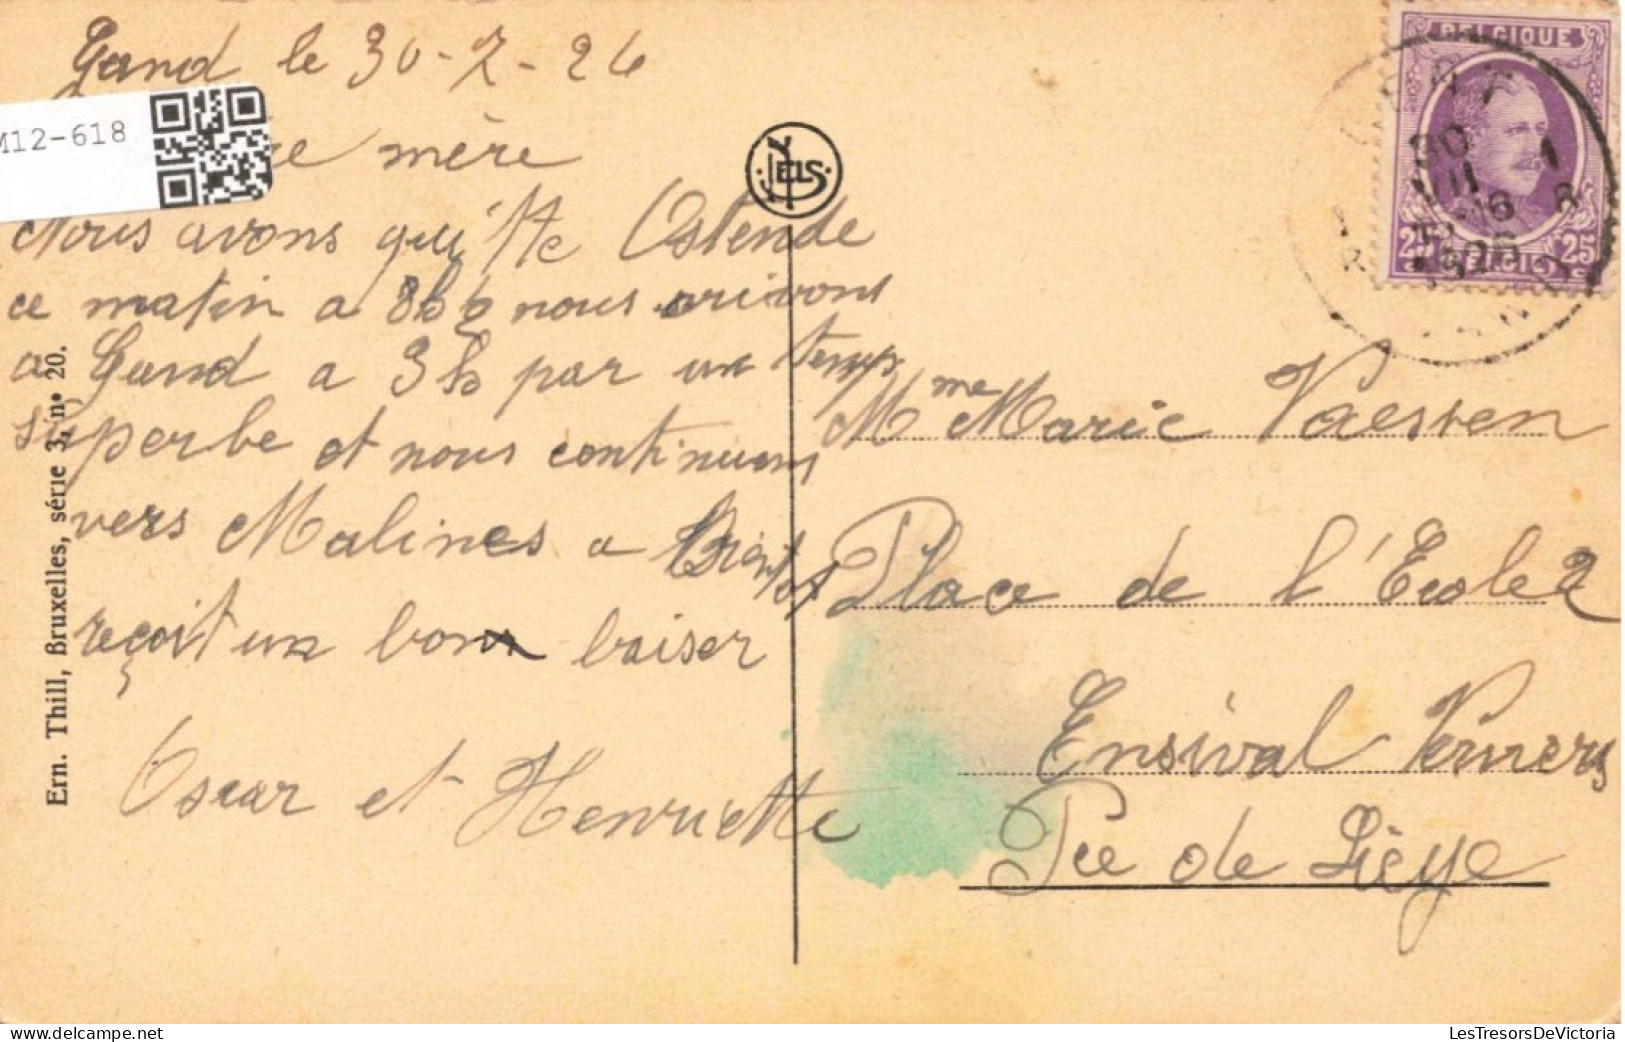 Gand le 30-7-26
M12-618
mère
Nous avons qui'tte Ostende
ce matin a 8h nous arivons
a Gand a 3h par un temps
superbe et nous continuons
vers Malines a Bientot
reçoit un bon baiser
Oscar et Henriette
Ern. Thill, Bruxelles, série 3, n° 20.
NELS
BELGIQUE
25 25
BELGIE
Mme Marie Vaessen
Place de l'Ecole 2
Ensival Verviers
Pce de Liège
LesTresorsDeVictoria